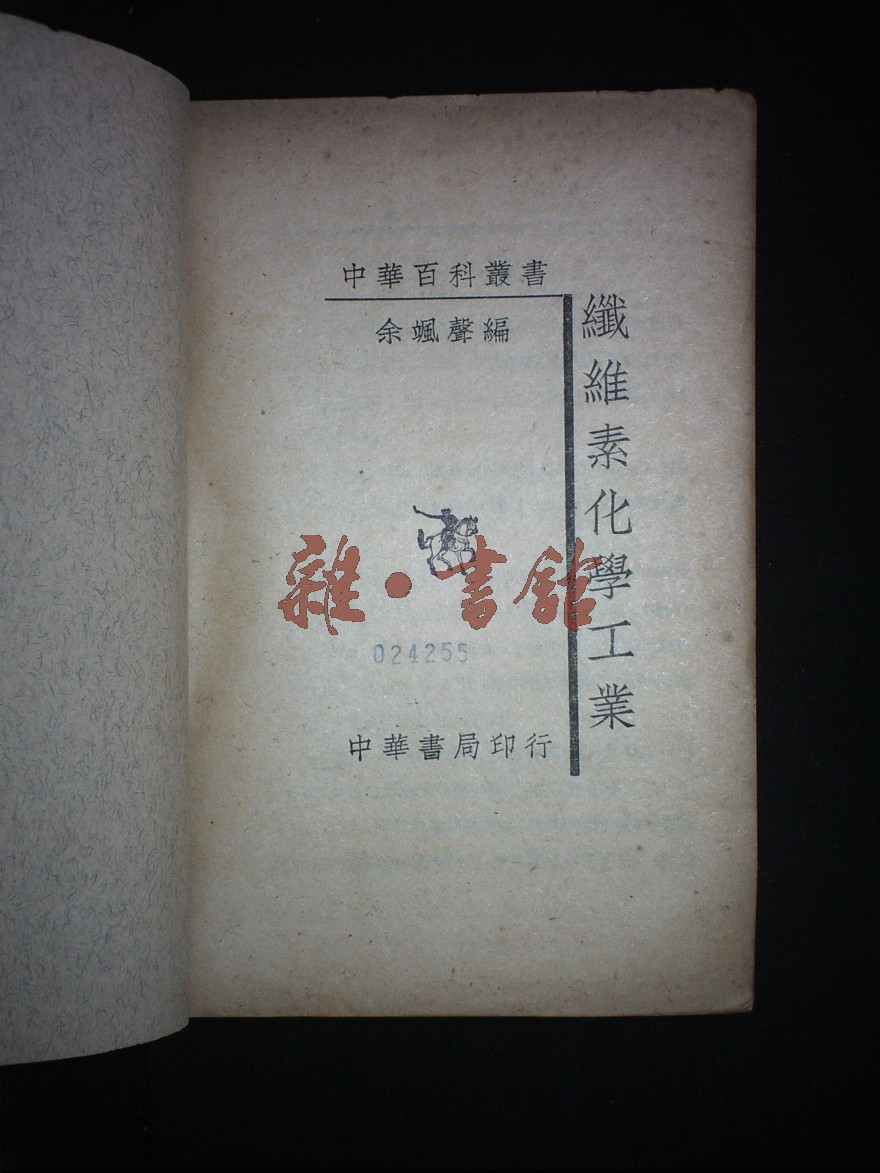 中華百科叢書
余颯聲編
纖維素化學工業
雜·書館
024255
中華書局印行